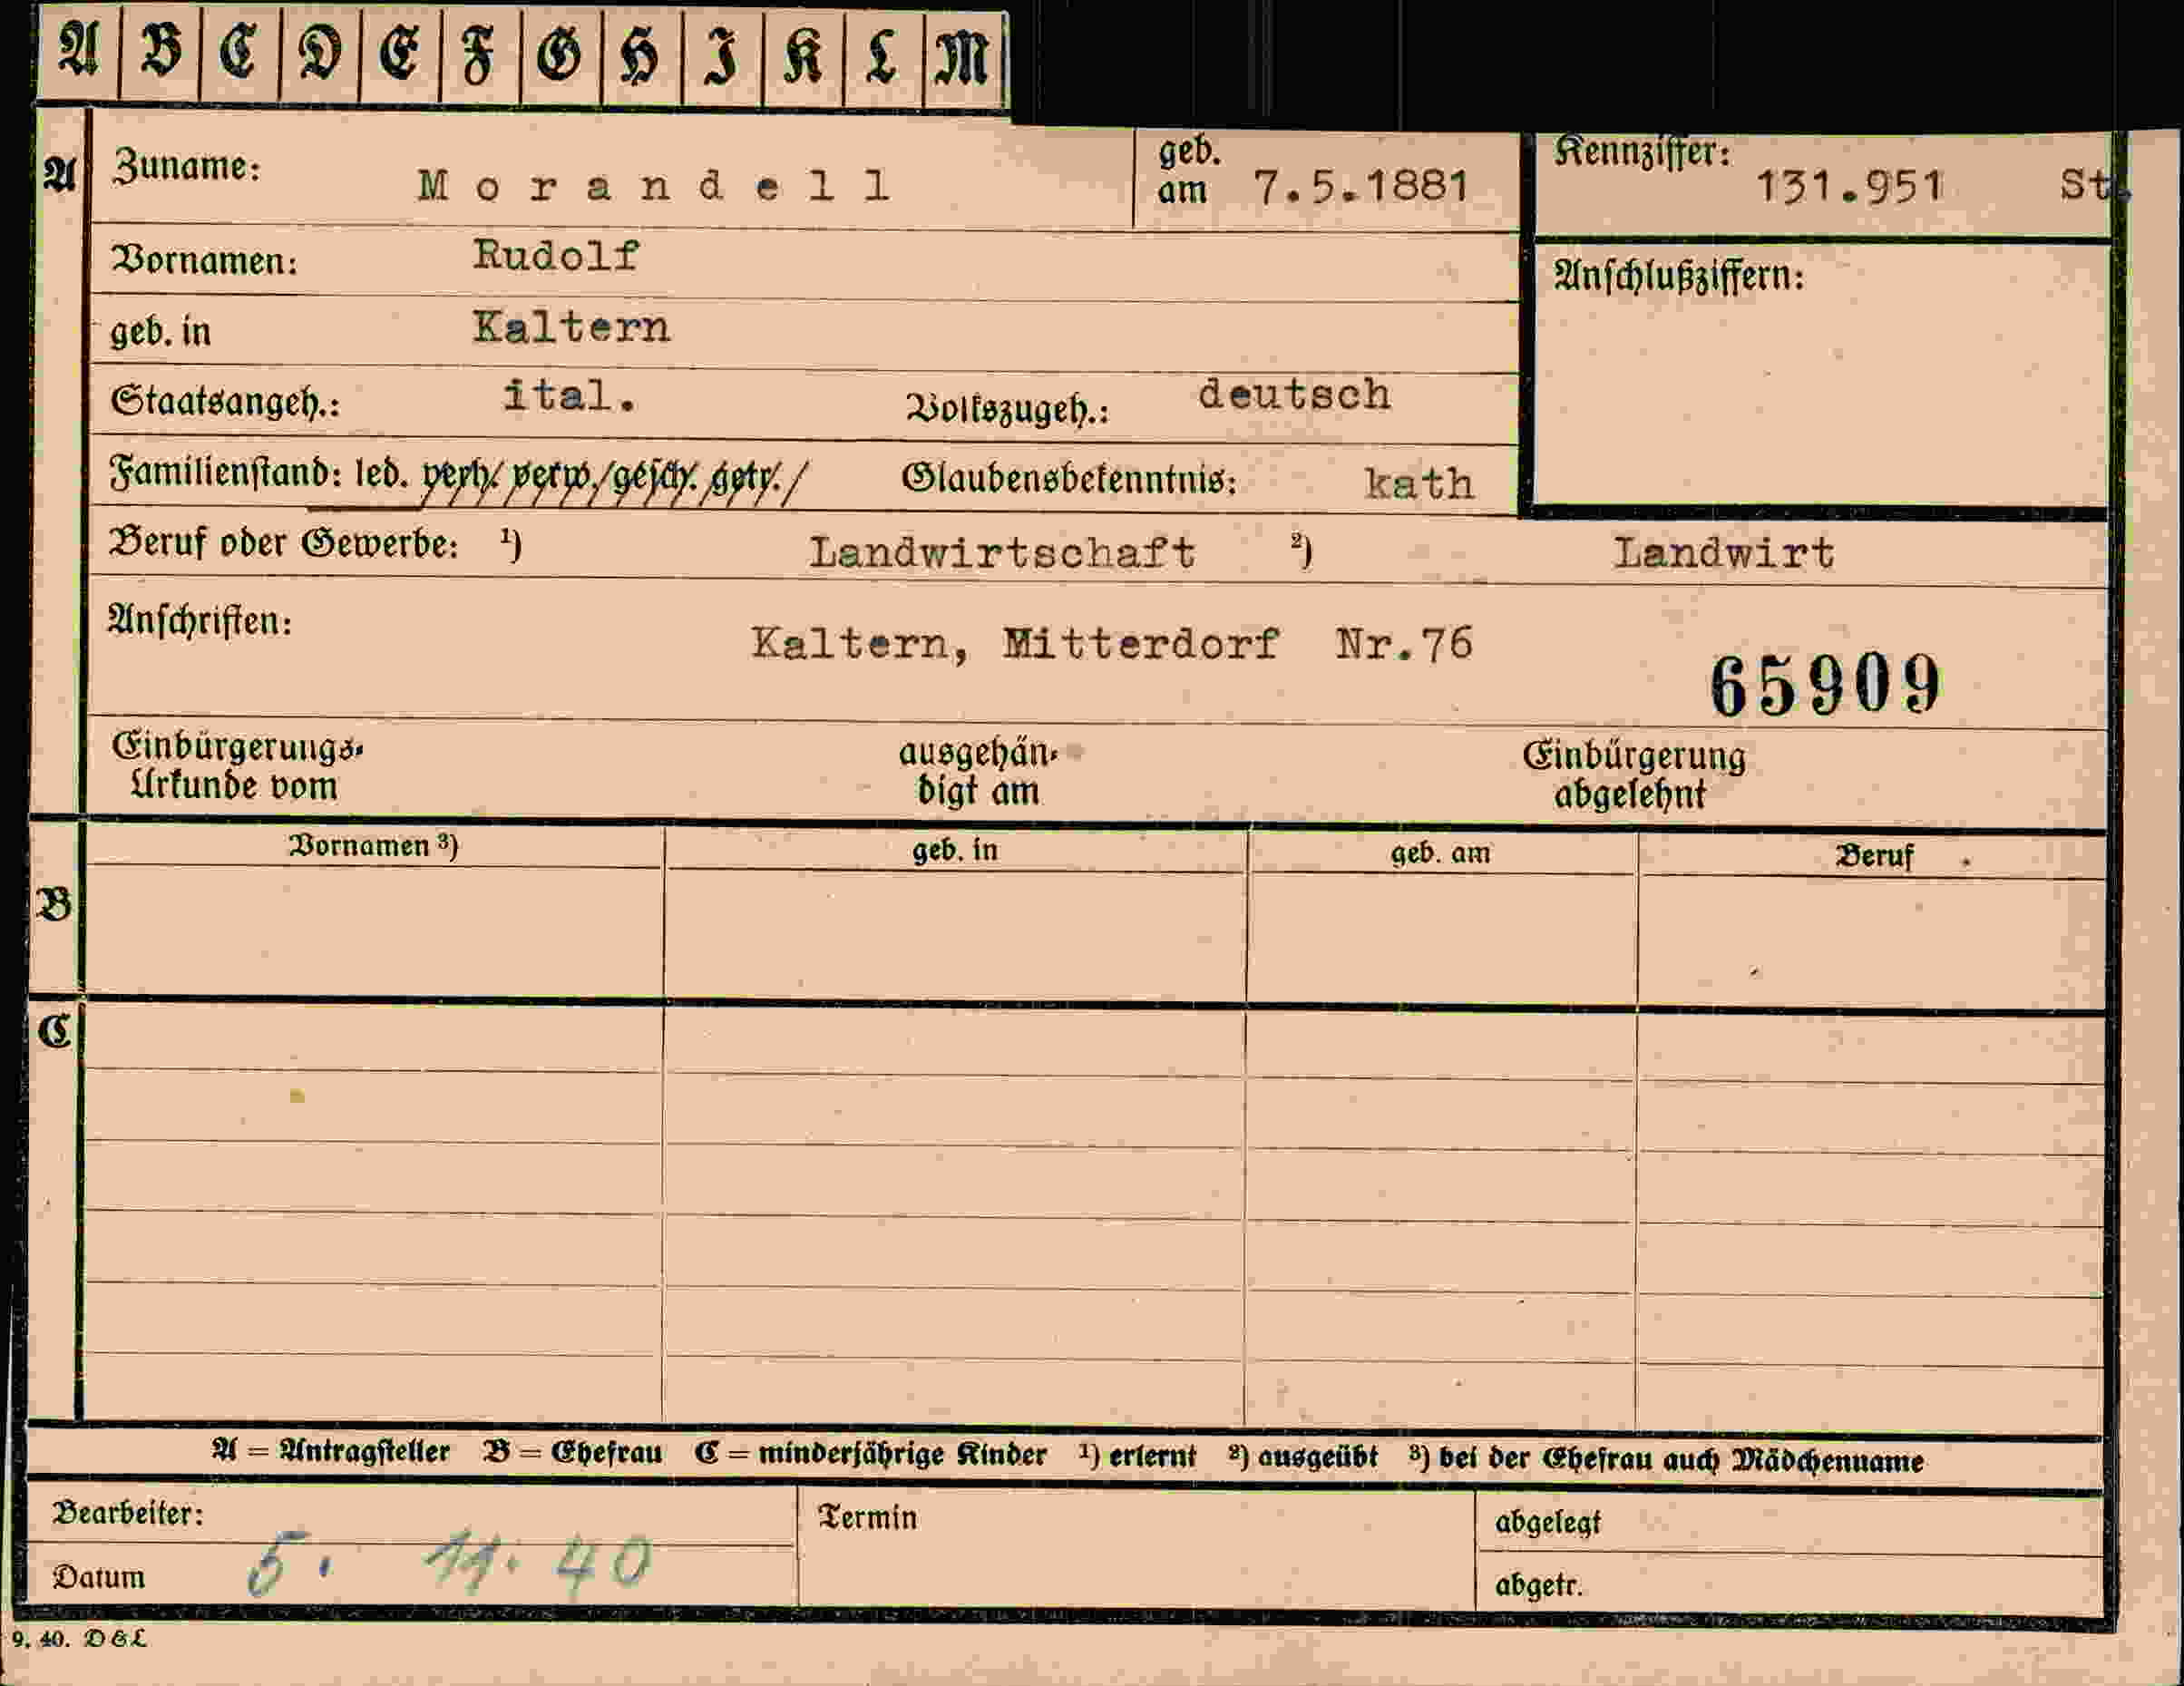 A B C D E F G H I K L M
A Zuname: Morandell geb. am 7.5.1881 Kennziffer: 131.951 St.
Vornamen: Rudolf Anschlußziffern:
geb. in Kaltern
Staatsangeh.: ital. Volkszugeh.: deutsch
Familienstand: led. verh. verw. gesch. getr. Glaubensbekenntnis: kath
Beruf oder Gewerbe: ¹) Landwirtschaft ²) Landwirt
Anschriften: Kaltern, Mitterdorf Nr.76
65909
Einbürgerungs- ausgehän- Einbürgerung
Urkunde vom digt am abgelehnt
Vornamen ³) geb. in geb. am Beruf
B
C
A = Antragsteller B = Ehefrau C = minderjährige Kinder ¹) erlernt ²) ausgeübt ³) bei der Ehefrau auch Mädchenname
Bearbeiter: Termin abgelegt
Datum 5. 11. 40 abgetr.
9. 40. D&L